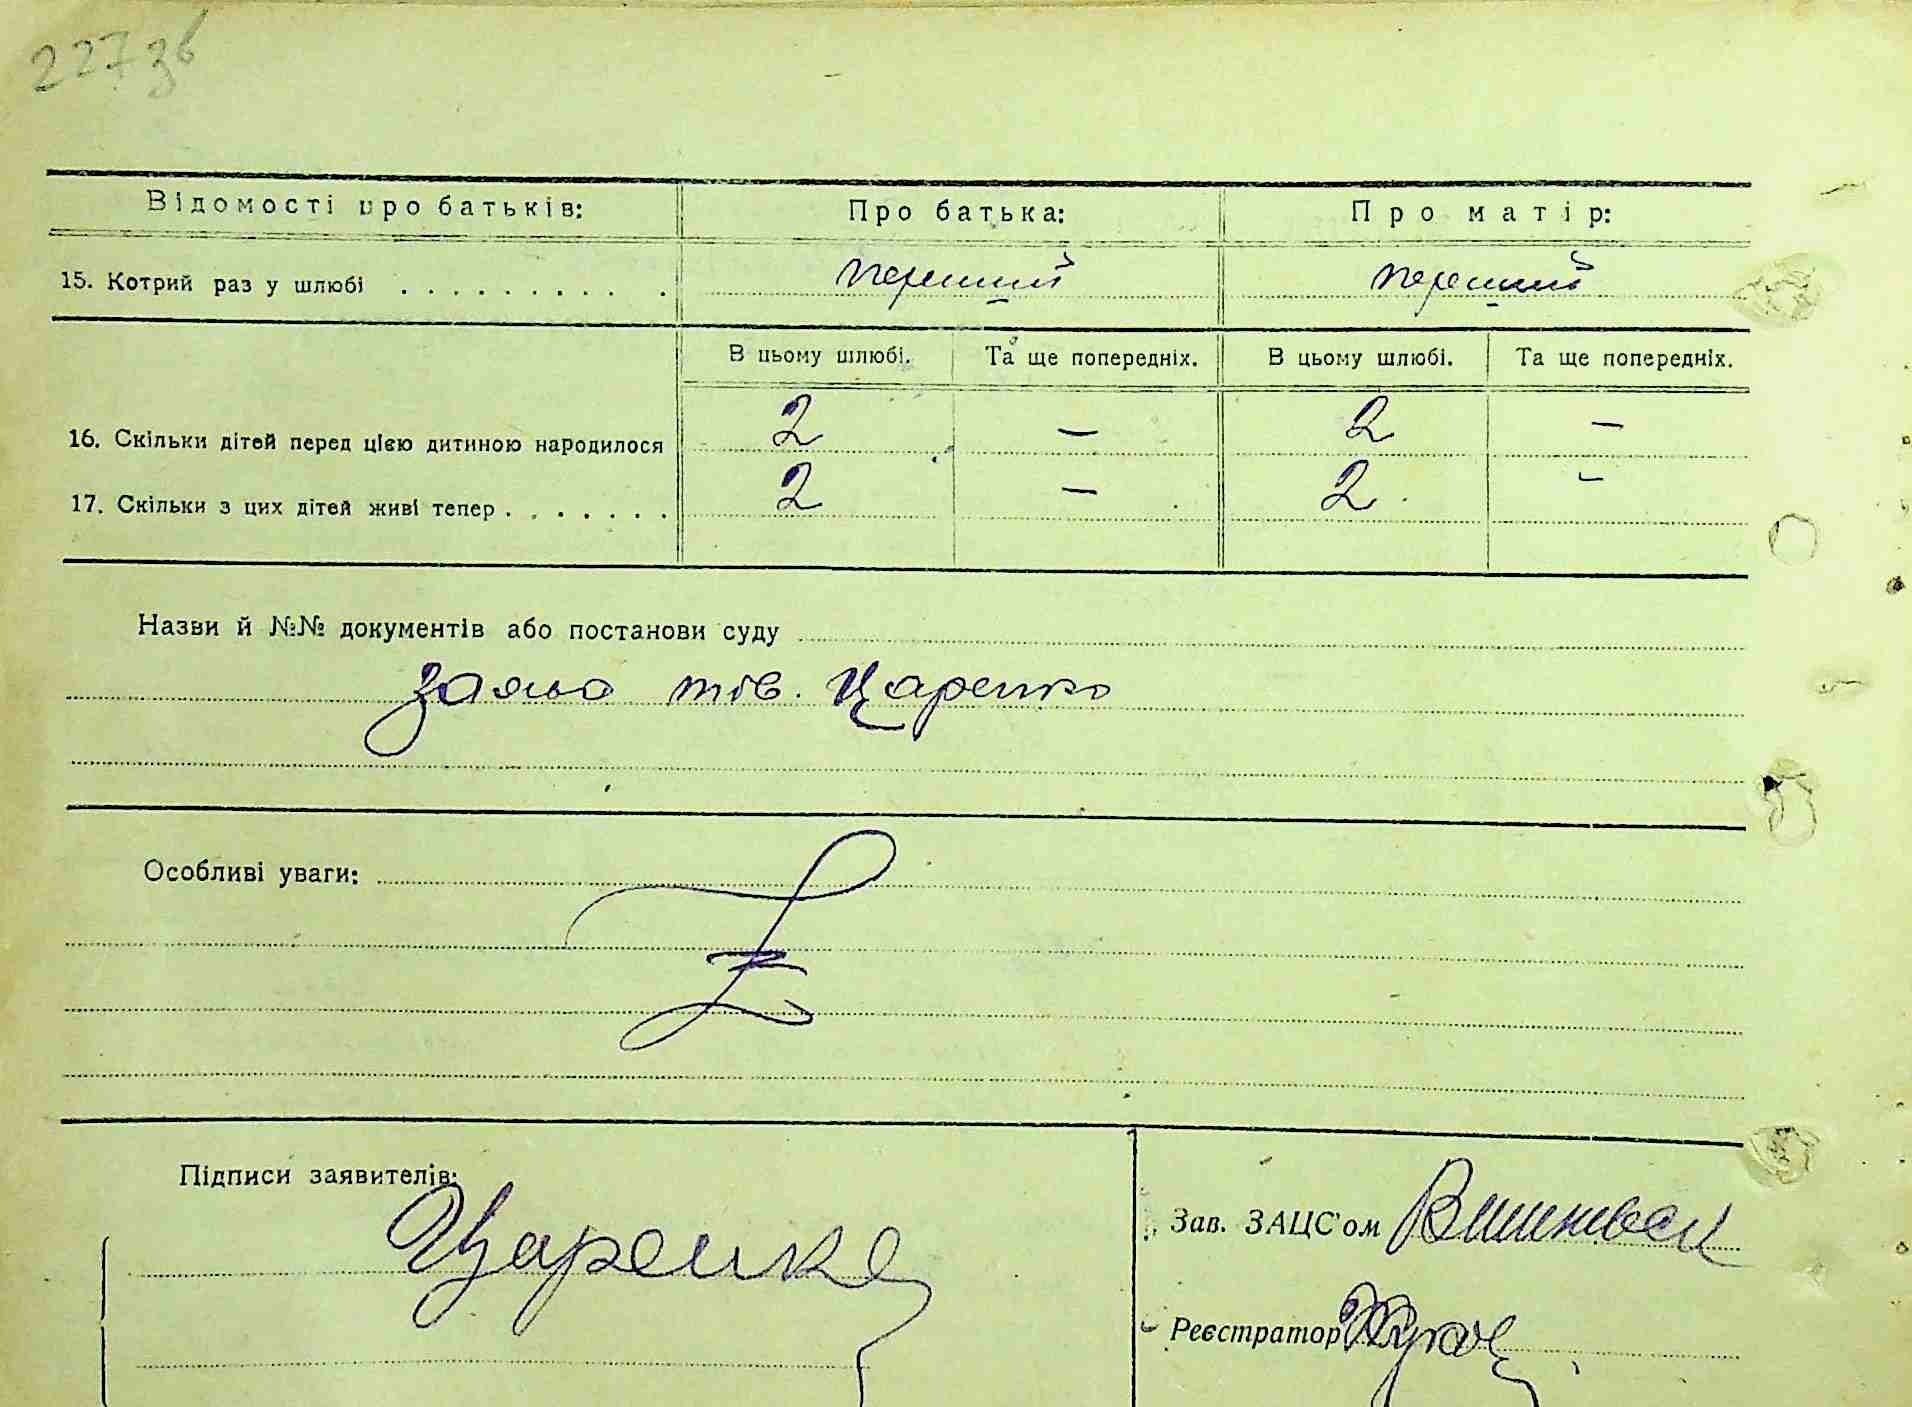 227 зв
Відомості про батьків: Про батька: Про матір:
15. Котрий раз у шлюбі . . . . . . . . . . перший перший
В цьому шлюбі. Та ще попередніх. В цьому шлюбі. Та ще попередніх.
16. Скільки дітей перед цією дитиною народилося 2 — 2 —
17. Скільки з цих дітей живі тепер . . . . . . . 2 — 2 -
Назви й №№ документів або постанови суду
заява тов. Царенко
Особливі уваги:
Підписи заявителів:
Царенко
Зав. ЗАЦС'ом
Реєстратор